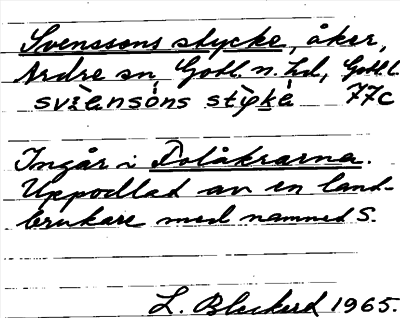 Svenssons stycke, åker,
Ardre sn, Gotl. n. hd, Gotl. l.
svænsòns stỳkə̀ 77c
Ingår i Tolåkrarna.
Uppodlad av en land-
brukare med namned S.
L. Bleckerd 1965.